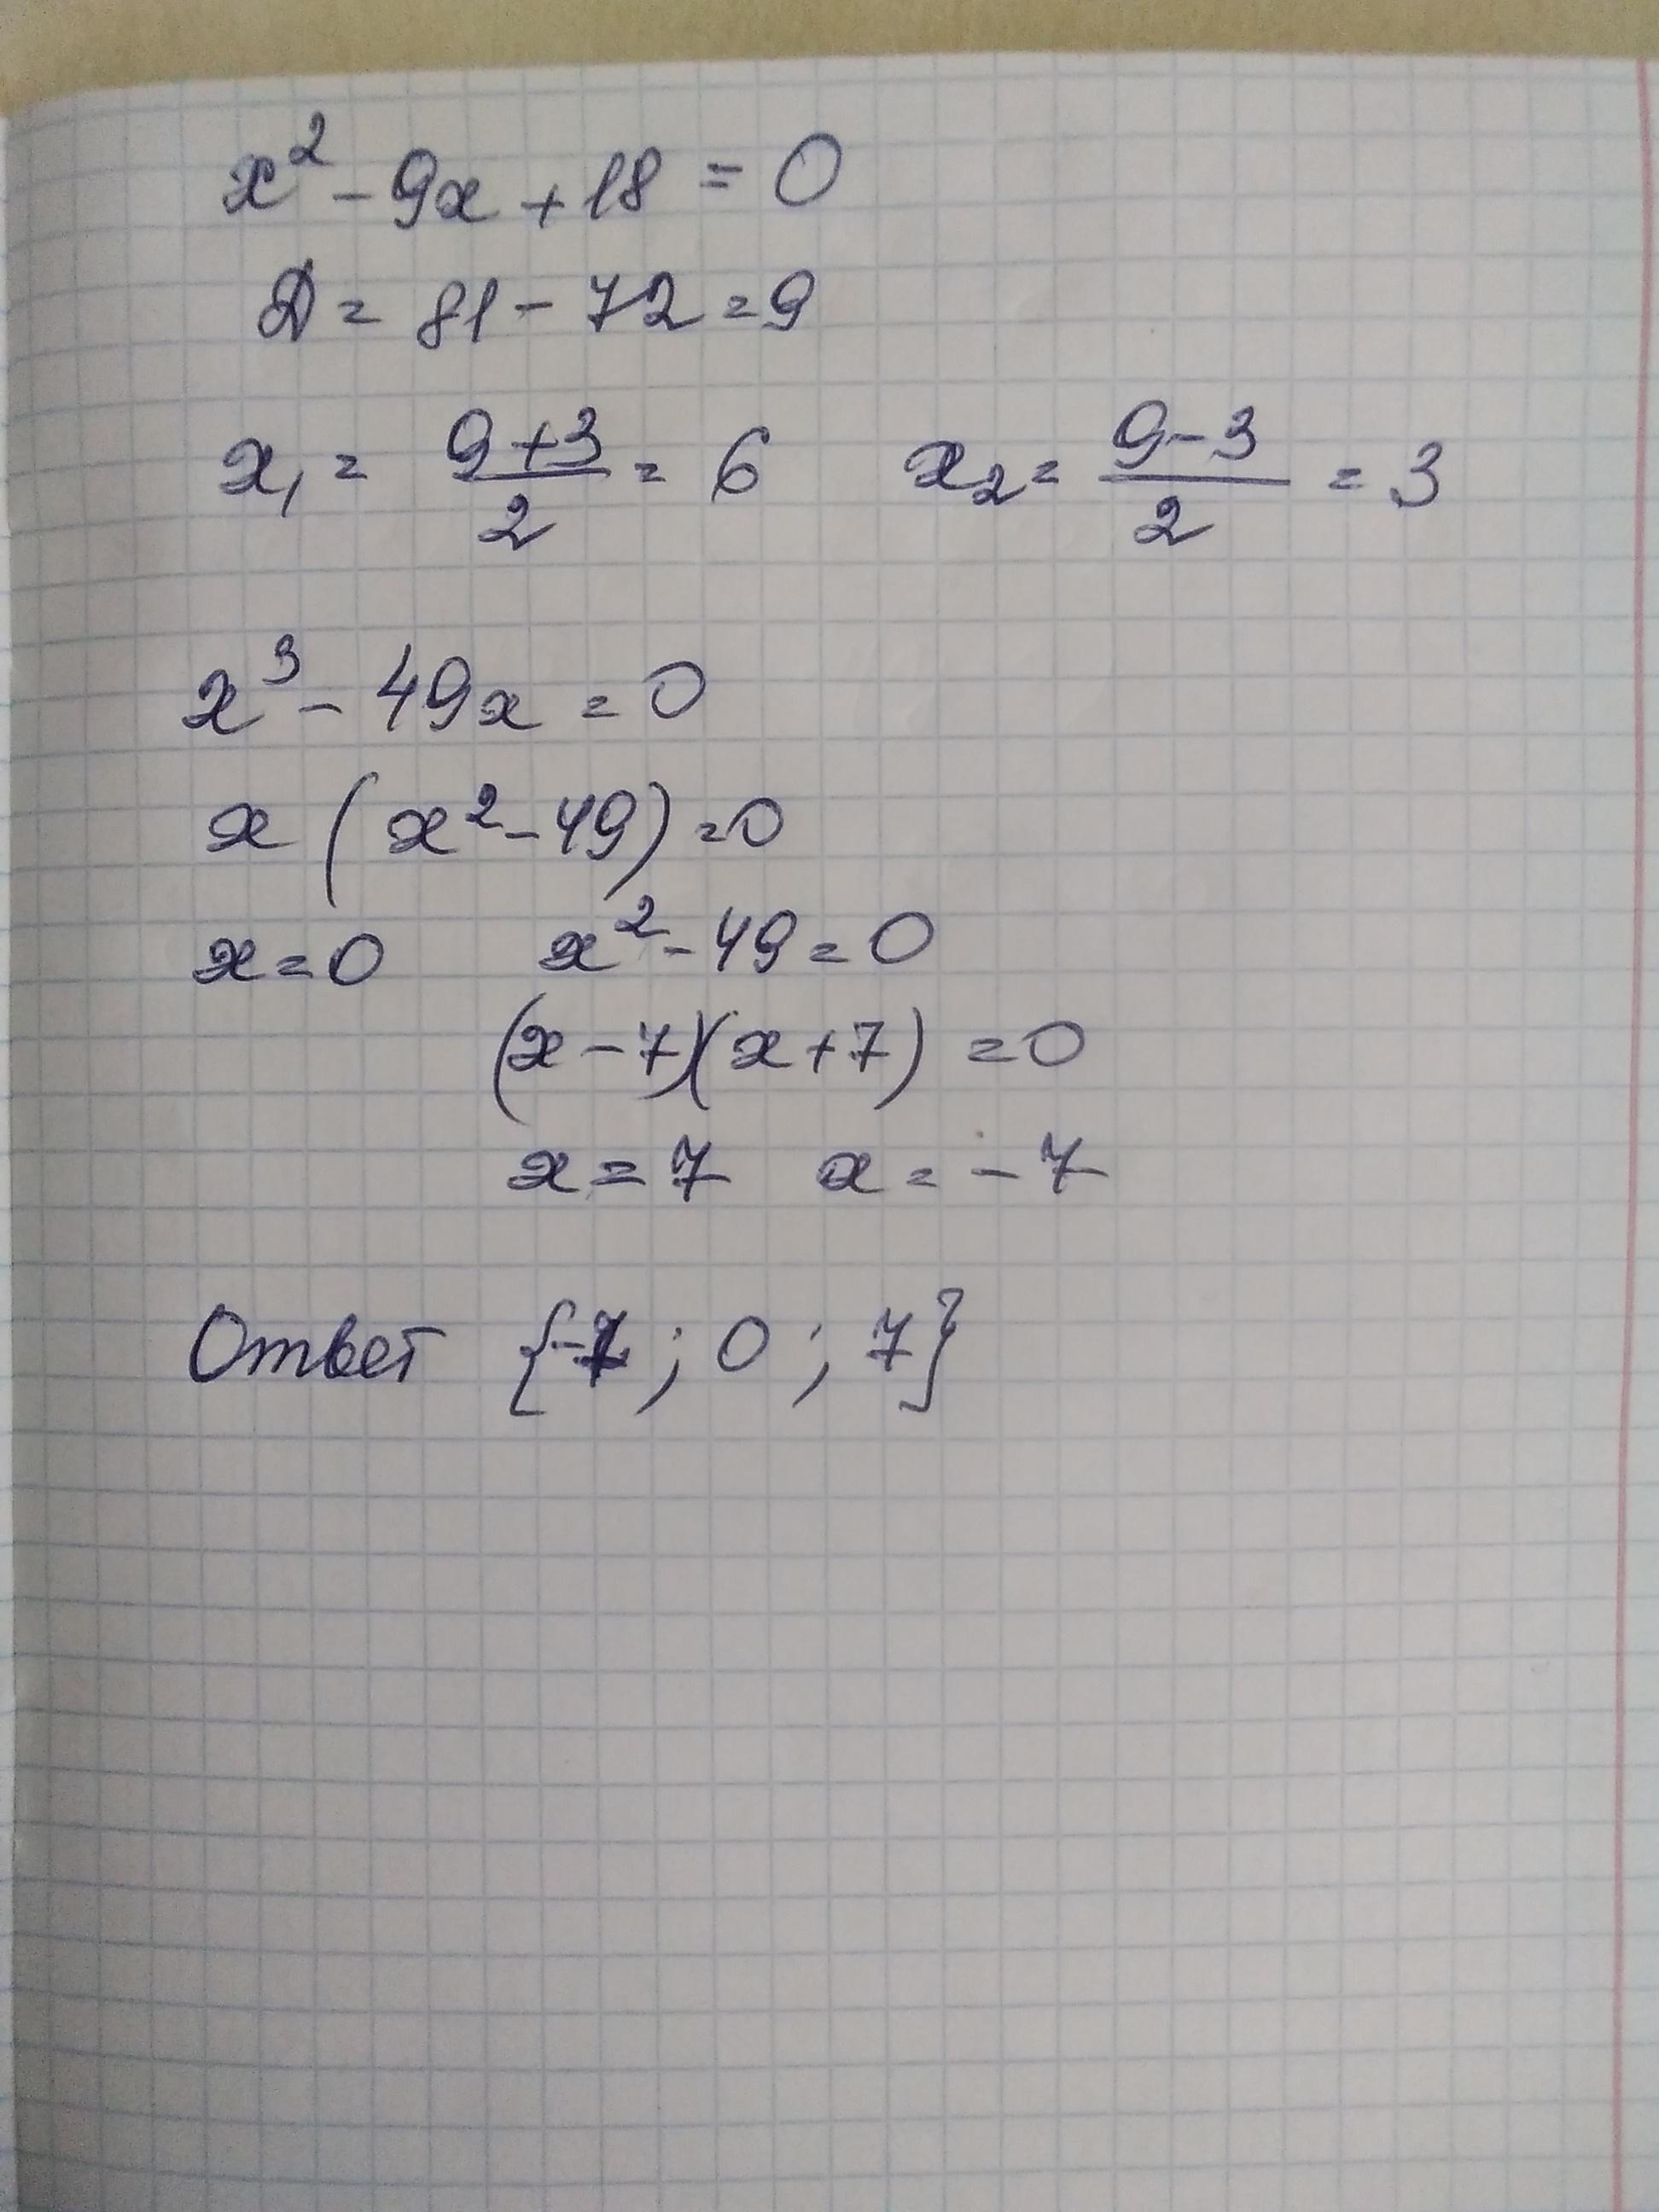 x² - 9x + 18 = 0
D = 81 - 72 = 9
x₁ = (9+3)/2 = 6   x₂ = (9-3)/2 = 3
x³ - 49x = 0
x (x² - 49) = 0
x = 0   x² - 49 = 0
(x - 7)(x + 7) = 0
x = 7   x = -7
Ответ {-7; 0; 7}